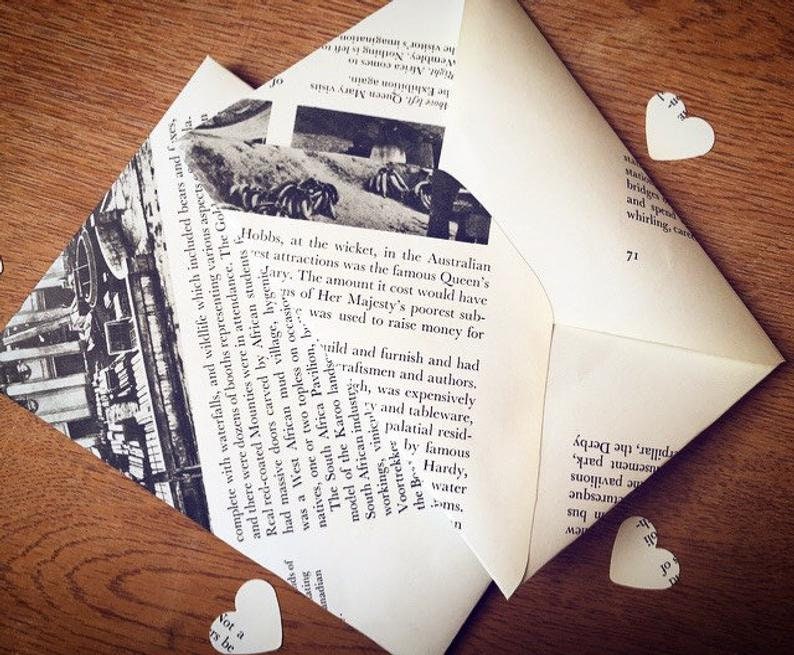 he visitor's imagination
Wembley. Nothing is left to
Right. Africa comes to
the Exhibition again.
Above left. Queen Mary visits
of
Hobbs, at the wicket, in the Australian
est attractions was the famous Queen's
ary. The amount it cost would have
ns of Her Majesty's poorest sub-
was used to raise money for
uild and furnish and had
raftsmen and authors.
gh, was expensively
y and tableware,
palatial resid-
by famous
Hardy,
water
oms.
n
complete with waterfalls, and wildlife which included bears and foxes,
and there were dozens of booths representing various aspects
la.
Real red-coated Mounties were in attendance. The Gol
had massive doors carved by African students
was a West African mud village, hygienic
natives, one or two topless on occasion
The South Africa Pavilion, b
model of the Karoo landsc
South African industry
workings, vinicul
Voortrekker
the B
ds of
ating
anadian
sta
statio
bridges
and spend
whirling, care
71
rpillar, the Derby
usement park,
he pavilions
cturesque
in bus
new
Not a
rs be
of